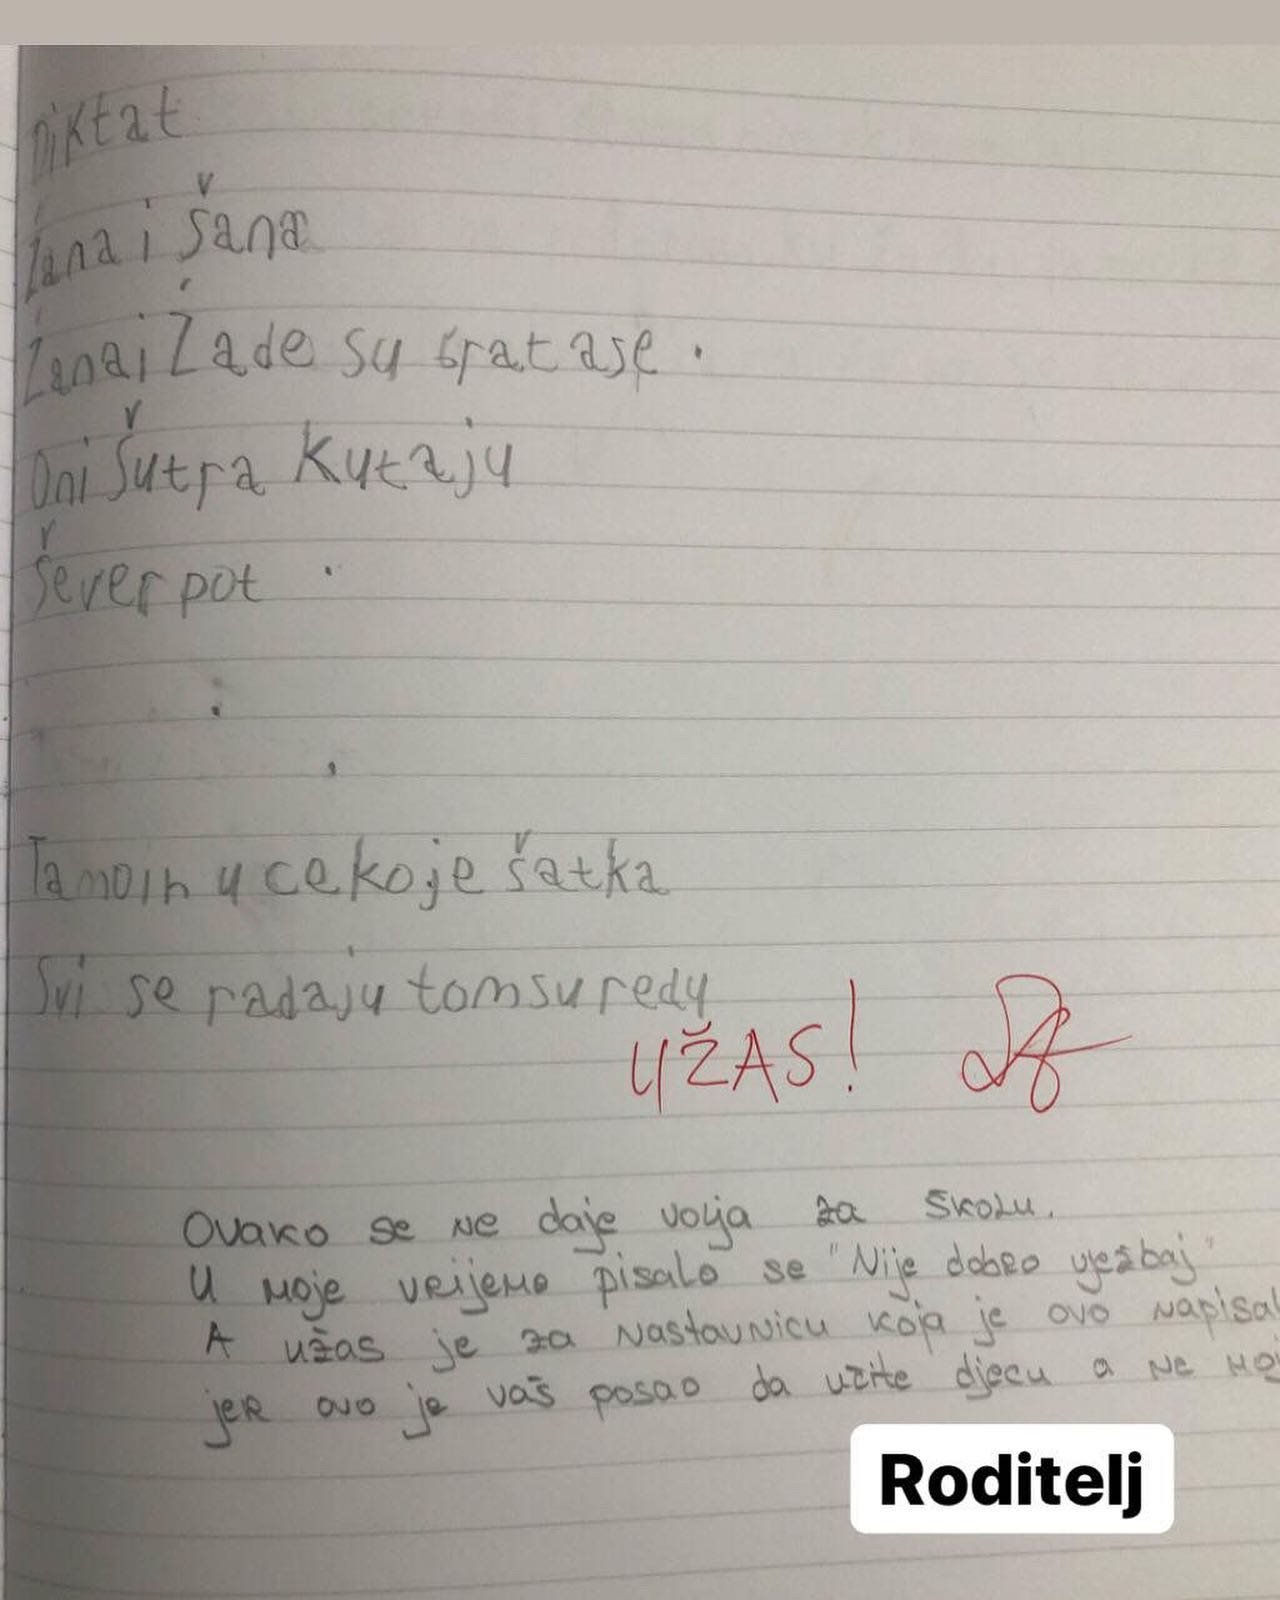 Diktat
Žana i Šana
Žana i Žade su brat ase.
Oni Šutra kutaju
Šever pot .
Tamoih u cekoje šatka
Svi se radaju tomsu redu
UŽAS!
Ovako se ne daje volja za školu.
U moje vrijeme pisalo se "Nije dobro vježbaj"
A užas je za nastavnicu koja je ovo napisal
jer ovo je vaš posao da učite djecu a ne moj
Roditelj